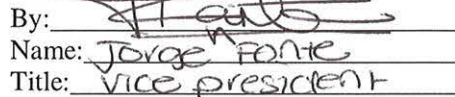 By:
Name: Jorge Fonte
Title: Vice president